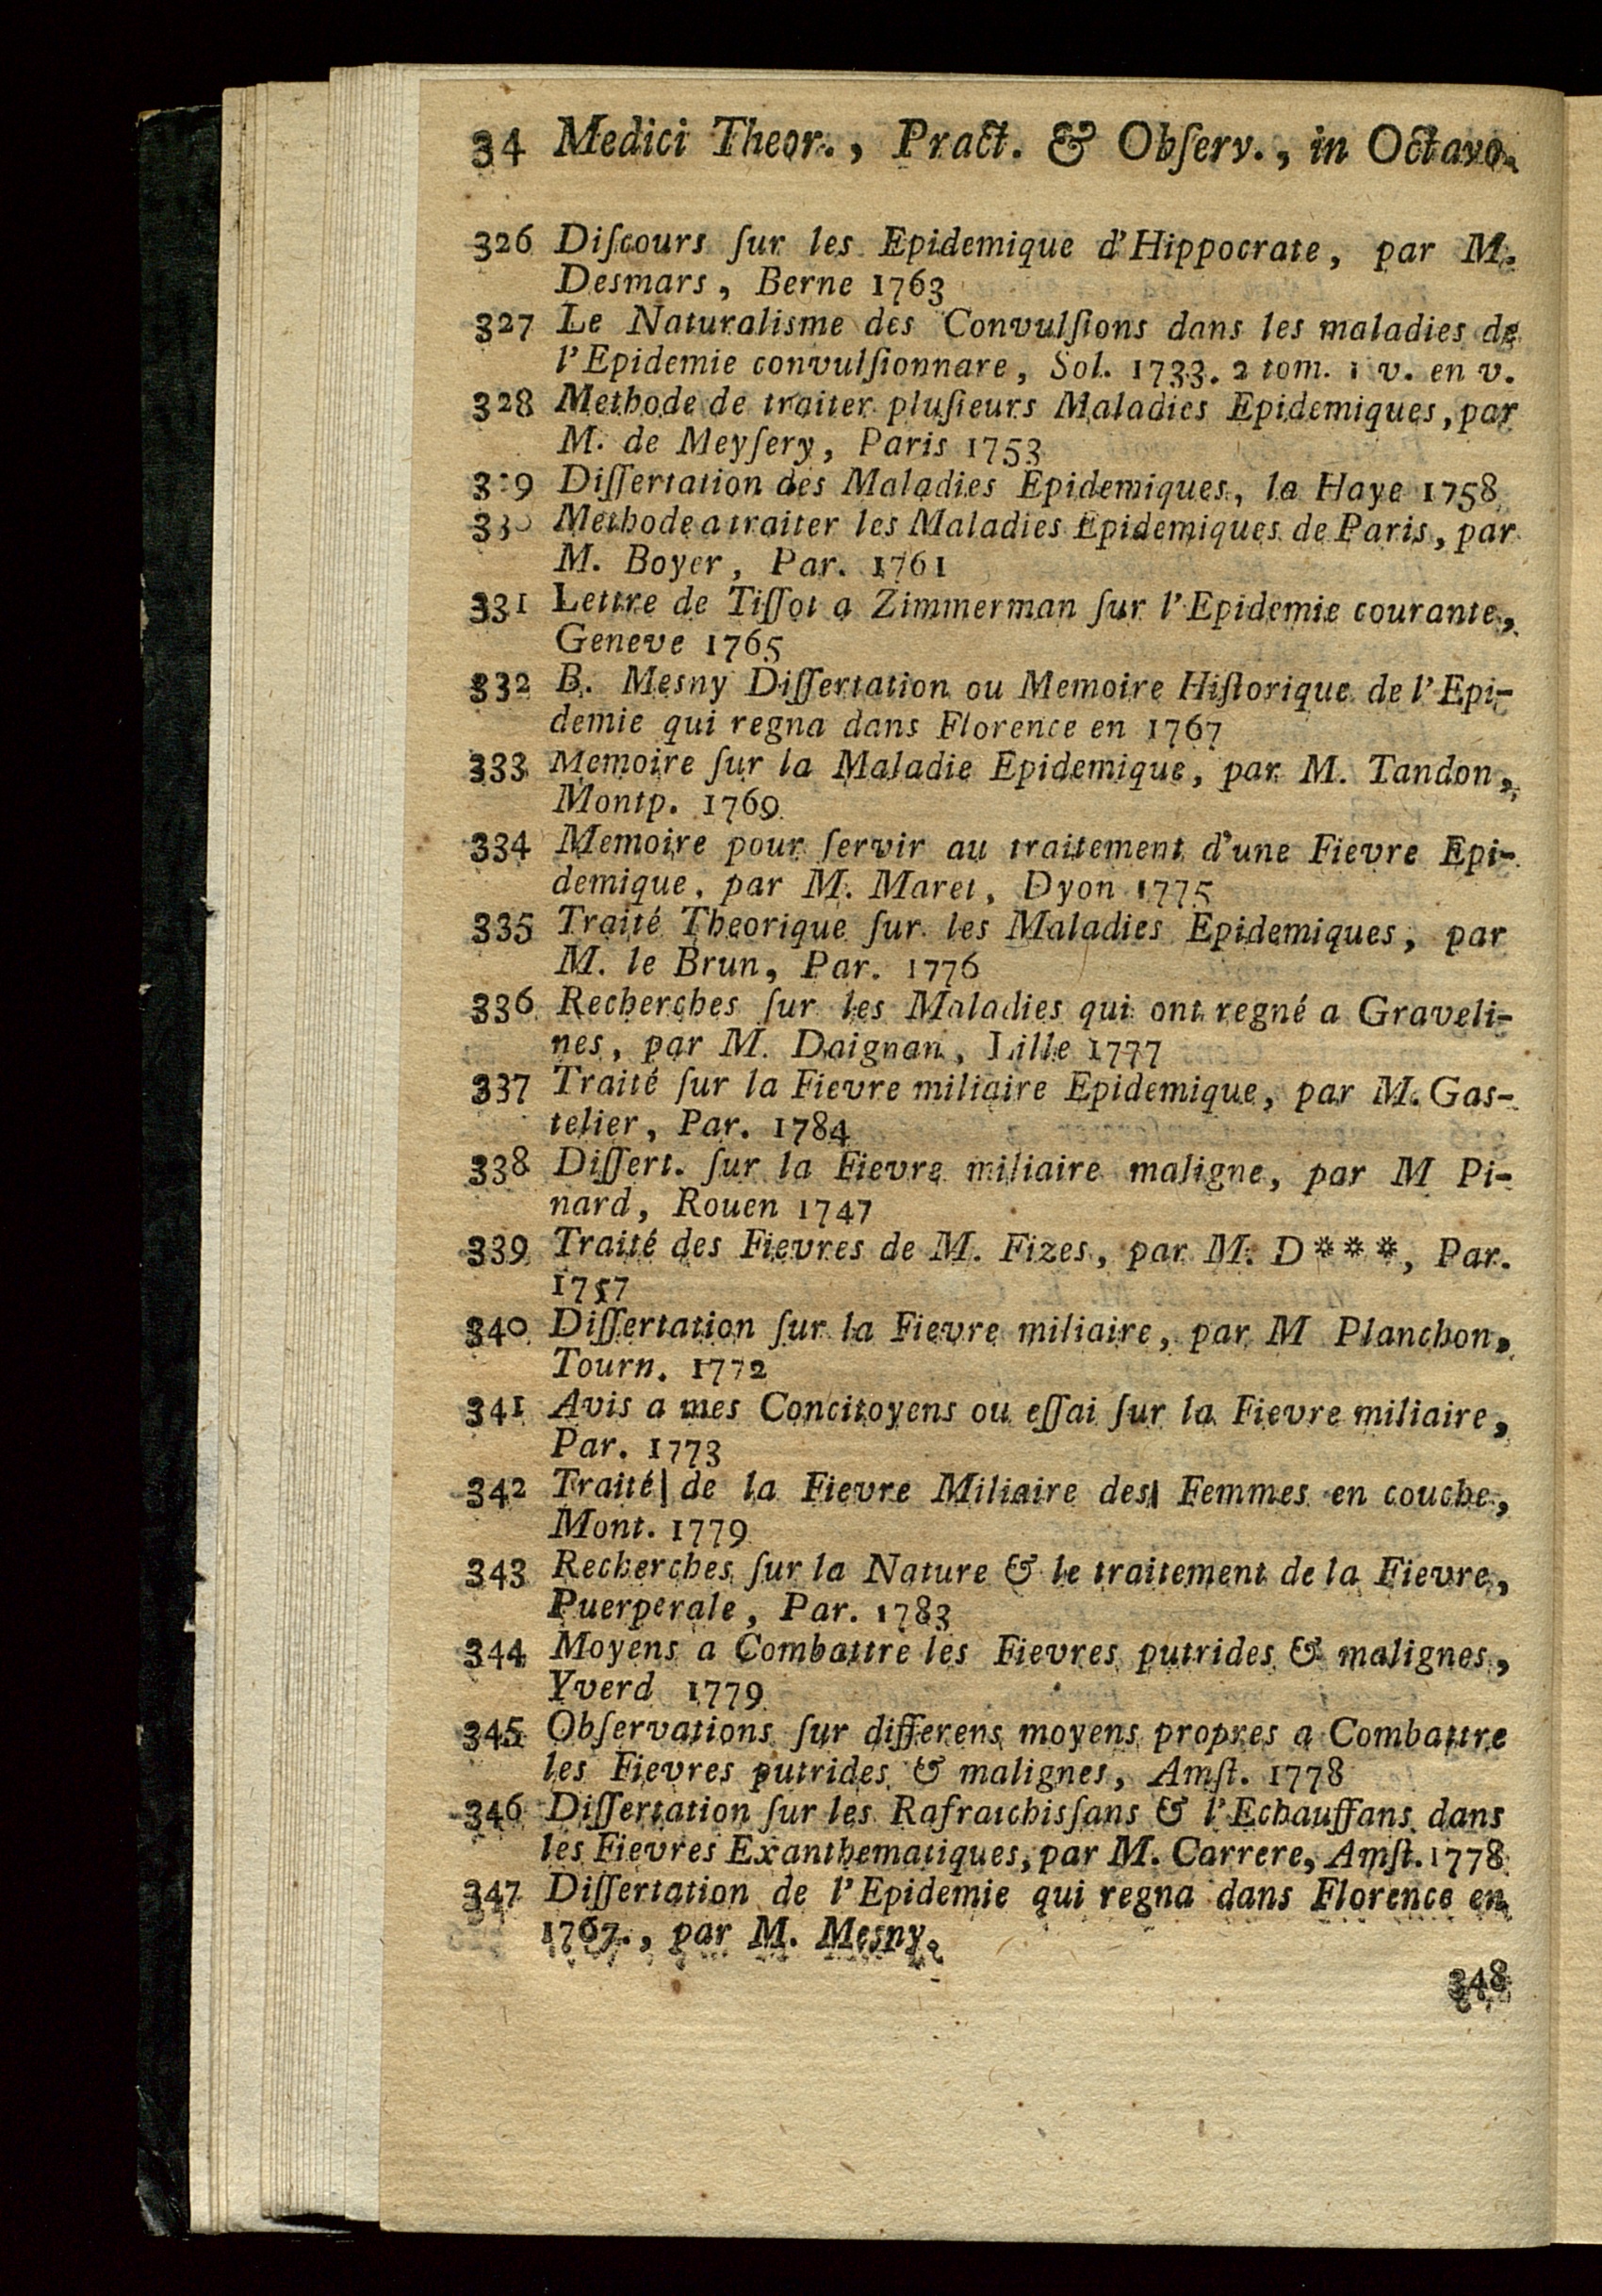 34 Medici Theor., Pract. & Obſerv., in Octavo.
326 Diſcours ſur les Epidemique d'Hippocrate, par M.
Desmars, Berne 1763
327 Le Naturalisme des Convulſions dans les maladies de
l'Epidemie convulſionnare, Sol. 1733. 2 tom. 1 v. en v.
328 Methode de traiter pluſieurs Maladies Epidemiques, par
M. de Meyſery, Paris 1753
329 Diſſertation des Maladies Epidemiques, la Haye 1758
330 Methode a traiter les Maladies Epidemiques de Paris, par
M. Boyer, Par. 1761
331 Lettre de Tiſſot a Zimmerman ſur l'Epidemie courante,
Geneve 1765
332 B. Mesny Diſſertation ou Memoire Hiſtorique de l'Epi-
demie qui regna dans Florence en 1767
333 Memoire ſur la Maladie Epidemique, par M. Tandon,
Montp. 1769
334 Memoire pour ſervir au traitement d'une Fievre Epi-
demique, par M. Maret, Dyon 1775
335 Traité Theorique ſur les Maladies Epidemiques, par
M. le Brun, Par. 1776
336 Recherches ſur les Maladies qui ont regné a Graveli-
nes, par M. Daignan, Lille 1777
337 Traité ſur la Fievre miliaire Epidemique, par M. Gas-
telier, Par. 1784
338 Diſſert. ſur la Fievre miliaire maligne, par M Pi-
nard, Rouen 1747
339 Traité des Fievres de M. Fizes, par M. D***, Par.
1757
340 Diſſertation ſur la Fievre miliaire, par M Planchon,
Tourn. 1772
341 Avis a mes Concitoyens ou eſſai ſur la Fievre miliaire,
Par. 1773
342 Traité| de la Fievre Miliaire des| Femmes en couche,
Mont. 1779
343 Recherches ſur la Nature & le traitement de la Fievre,
Puerperale, Par. 1783
344 Moyens a Combattre les Fievres putrides & malignes,
Yverd 1779
345 Obſervations ſur differens moyens propres a Combattre
les Fievres putrides & malignes, Amſt. 1778
346 Diſſertation ſur les Rafraichisſans & l'Echauffans dans
les Fievres Exanthematiques, par M. Carrere, Amſt. 1778
347 Diſſertation de l'Epidemie qui regna dans Florence en
1767., par M. Mesny.
348